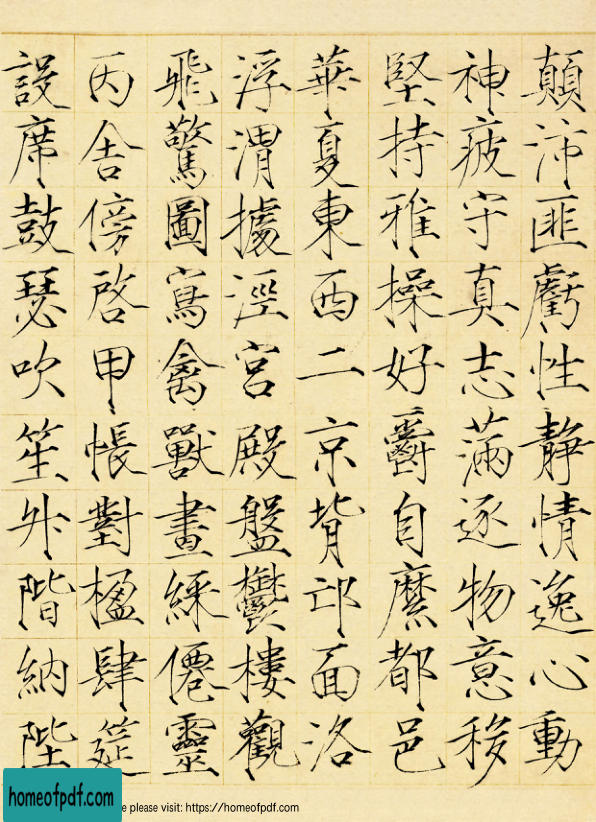 顛沛匪虧性静情逸心動
神疲守真志滿逐物意移
堅持雅操好爵自縻都邑
華夏東西二京背邙面洛
浮渭據涇宮殿盤鬱樓觀
飛驚圖寫禽獸畫綵僊靈
丙舍傍啓甲帳對楹肆筵
設席鼓瑟吹笙升階納陛
homeofpdf.com
e please visit: https://homeofpdf.com